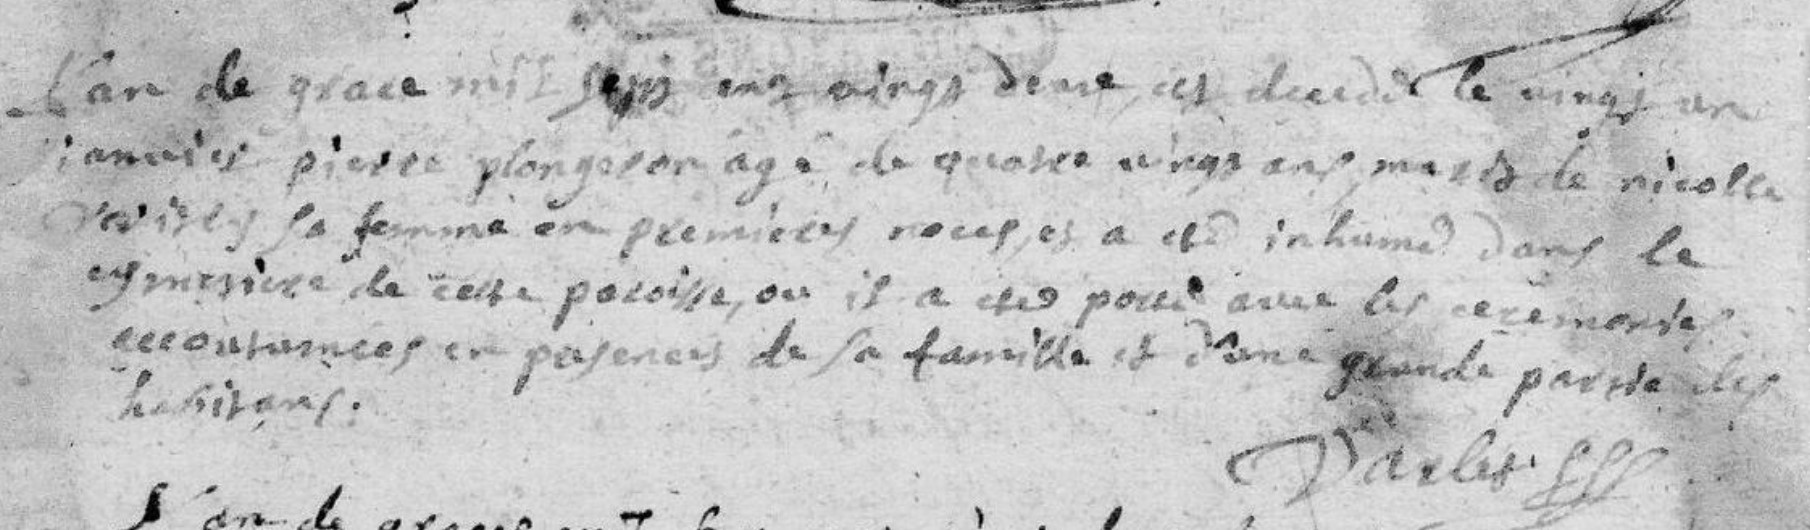 L'an de grace mil sept cent vingt deux, est decedé le vingt un
januier pierre plongeron âgé de quatre vingt ans, marit de nicolle
sa femme en premieres noces, et a eté inhumé dans le
cymetiere de cette paroisse, ou il a eté porté avec les ceremonies
accoutumées en presences de sa famille et d'une grande partie des
habitans.
Varlet
L'an de grace